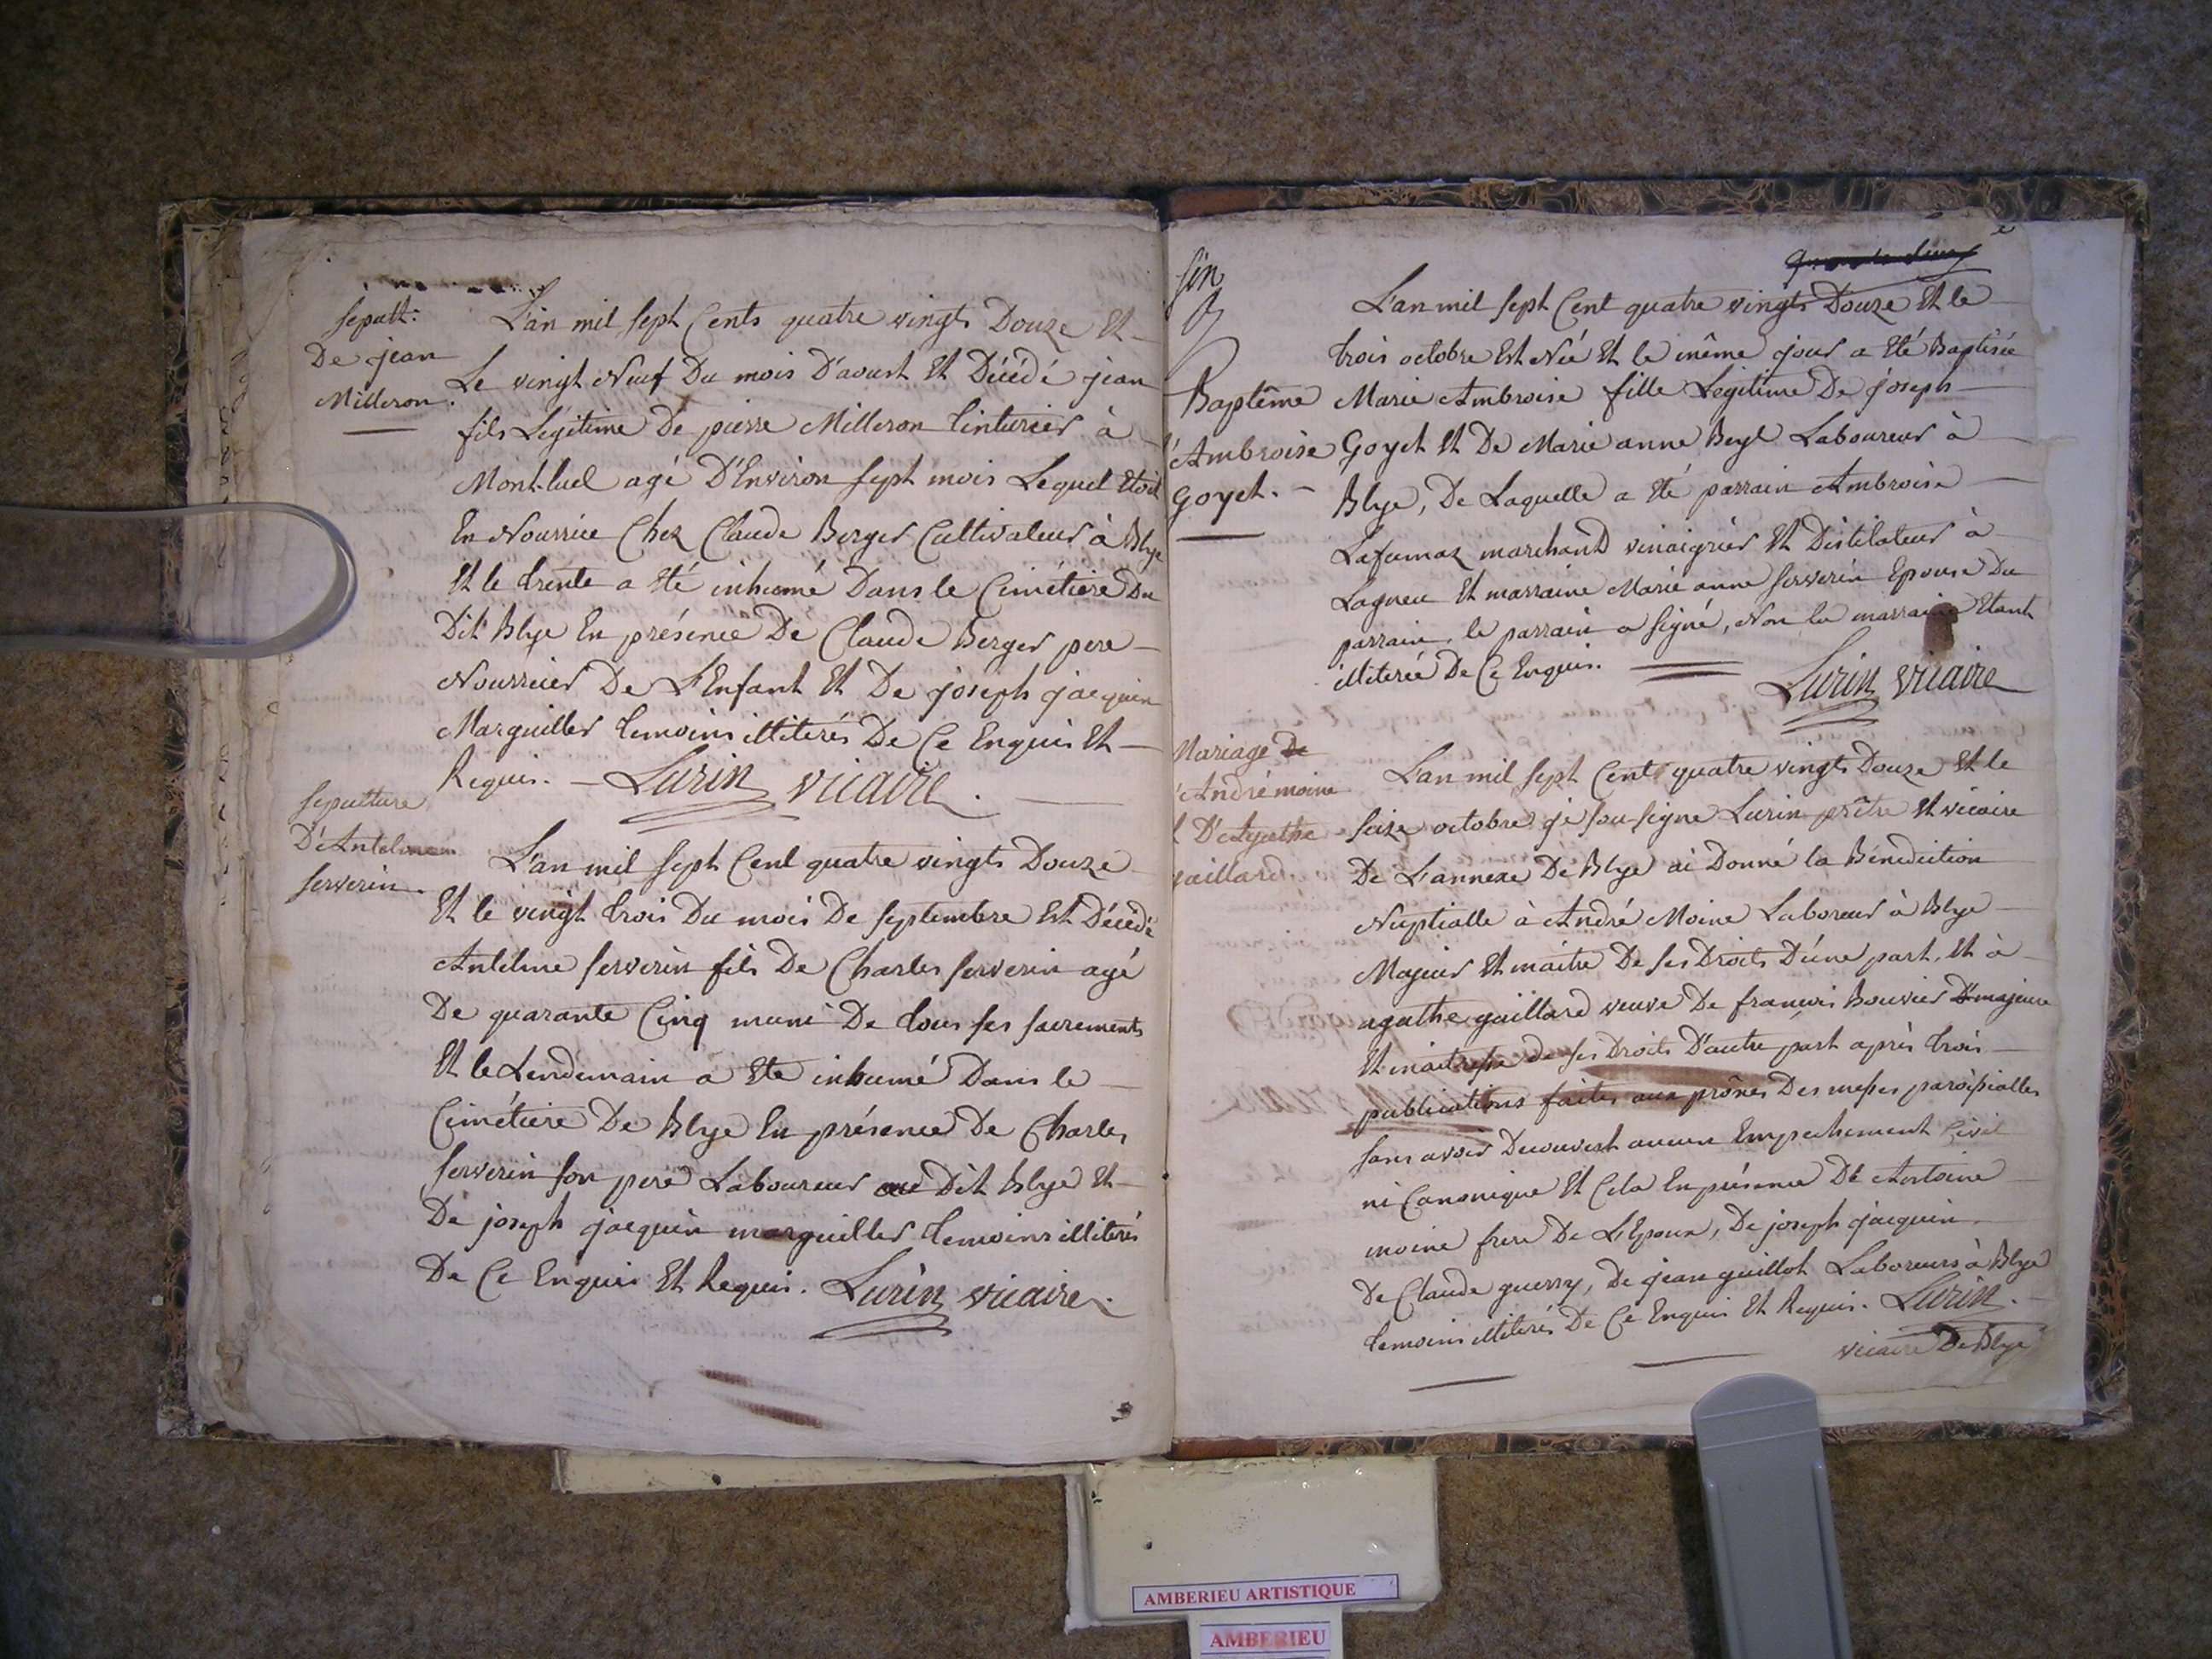 sepult:
De jean
Milleron.
L'an mil sept Cents quatre vingts Douze Et
Le vingt Neuf Du mois D'aoust Et Décédé jean
fils Légitime De pierre Milleron tinturier à
Mont-luel agé D'Environ sept mois Lequel Etoit
En Nourrice Chez Claude Berger Cultivateur à Blye
Et le trente a Eté inhumé Dans le Cimétiere Du
Dit Blye En présence De Claude Berger pere
Nourricier De L'Enfant Et De joseph jacquin
Marguiller temoins illiterés De Ce Enquis Et
Requis. Lurin vicaire.
sepulture
D'Antelme
serverin.
L'an mil sept Cent quatre vingts Douze
Et le vingt trois Du mois De septembre Est Décédé
Antelme serverin fils De Charles serverin agé
De quarante Cinq muni De tous ses sacrements
Et le Lendemain a Eté inhumé Dans le
Cimétiere De Blye En présence De Charles
serverin son pere Laboureur au Dit Blye Et
De joseph jacquin marguiller temoins illiterés
De Ce Enquis Et Requis. Lurin vicaire.
Baptême
d'Ambroise
Goyet.
L'an mil sept Cent quatre vingts Douze Et le
trois octobre Est Née Et le même jour a Eté Baptisée
Marie Ambroise fille Legitime De joseph
Goyet Et De Marie anne Beyl Laboureur à
Blye, De Laquelle a Eté parrain Ambroise
Lafumaz marchand vinaigrier Et Distilateur à
Lagneu Et marraine Marie anne serverin Epouse Du
parrain, le parrain a signé, Non la marraine Etant
illiterée De Ce Enquis.
Lurin vicaire
Mariage De
André moine
Et D'Agathe
gaillard.
L'an mil sept Cent quatre vingts Douze Et le
seize octobre je sousigné Lurin prêtre Et vicaire
De L'annexe De Blye ai Donné la Bénédiction
Nuptialle à André Moine Laboreur à Blye
Majeur Et maitre De ses Droits D'une part, Et à
agathe gaillard veuve De francois Bouvier majeure
Et maitresse de ses Droits D'autre part après trois
publications faites aux prônes Des messes paroissialles
sans avoir Decouvert aucun Empechement Civil
ni Canonique Et Cela En présence De Antoine
moine frere De L'Epoux, De joseph jacquin
De Claude guerry, De jean guillot Laboreurs à Blye
temoins illiterés De Ce Enquis Et Requis. Lurin.
vicaire De Blye
AMBERIEU ARTISTIQUE
AMBERIEU